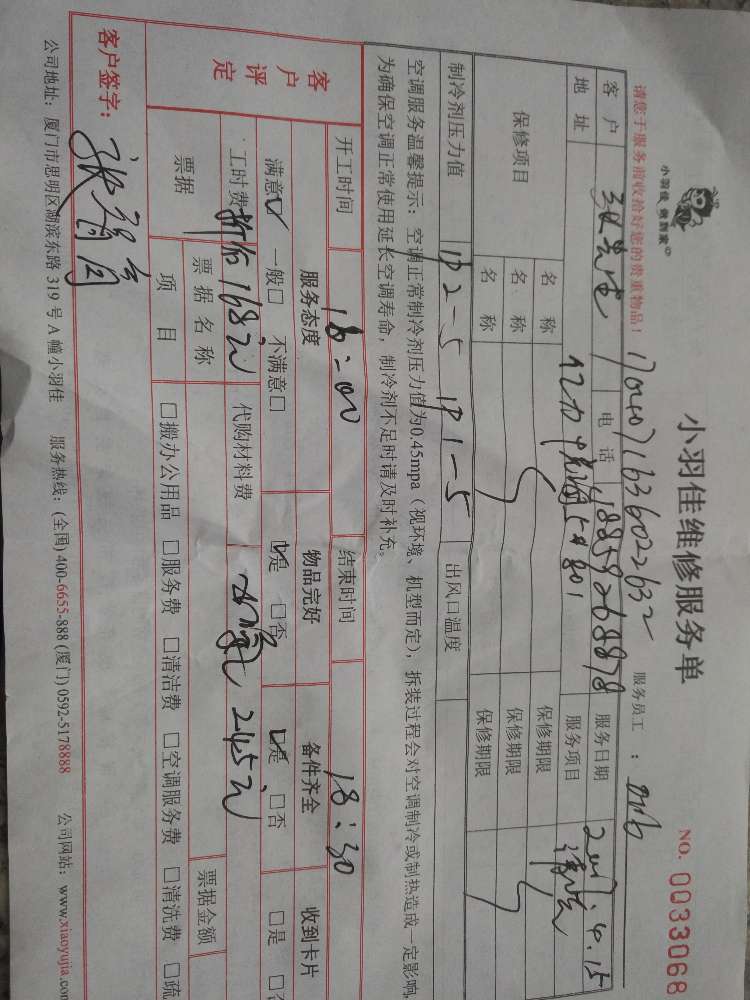 小羽佳 做到家
小羽佳维修服务单
NO. 0033068
17040716360022632 服务员工:
请您于服务前收拾好您的贵重物品!
客户 电话 18859268878 服务日期 2017.4.15
地址 5#801 服务项目
保修项目 名称 保修期限
名称 保修期限
名称 保修期限
制冷剂压力值 1P2-5 1P1-5 出风口温度
空调服务温馨提示:空调正常制冷剂压力值为0.45mpa(视环境、机型而定),拆装过程会对空调制冷或制热造成一定影响,
为确保空调正常使用延长空调寿命,制冷剂不足时请及时补充。
开工时间 16:00 结束时间 18:30
客户评定 服务态度 物品完好 备件齐全 收到卡片
满意☑ 一般□ 不满意□ ☑是 □否 ☑是 □否 □是
工时费 折后168元 代购材料费 245元
票据 票据名称 票据金额
项目 □搬办公用品 □服务费 □清洁费 □空调服务费 □清洗费 □疏
客户签字:
公司地址:厦门市思明区湖滨东路319号A幢小羽佳 服务热线:(全国)400-6655-888 (厦门)0592-5178888 公司网站:www.xiaoyujia.com